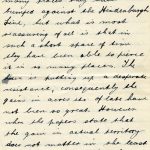 many places they have
bumped against the Hindenburgh
line, but what is most
reassuring of all is that in
such a short space of time
they have been able to pierce
it in so many places. The
is putting up a desperate
resistance, consequently the
gains in acres of late have
not been so great. However
when the papers state that
the gain in actual territory
does not matter in the least